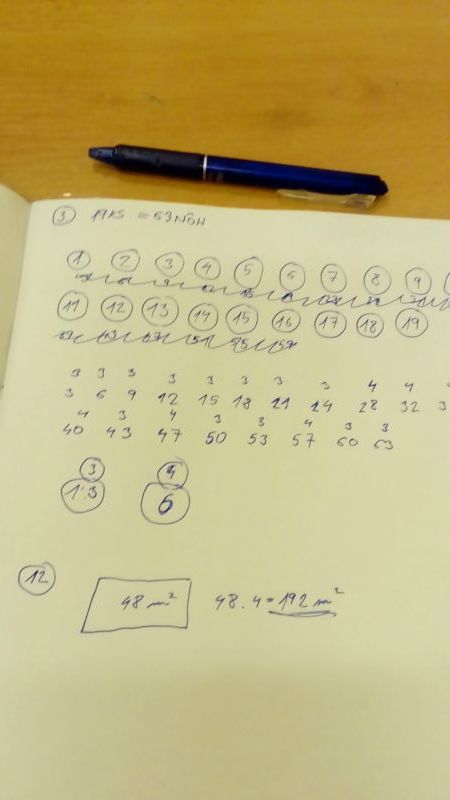 3 19KS = 63 NÔH
1 2 3 4 5 6 7 8 9
11 12 13 14 15 16 17 18 19
3 3 3 3 3 3 3 3 4 4
3 6 9 12 15 18 21 24 28 32 3
4 3 4 3 3 4 3 3
40 43 47 50 53 57 60 63
3 4
13 6
12
48 m² 48.4=192 m²